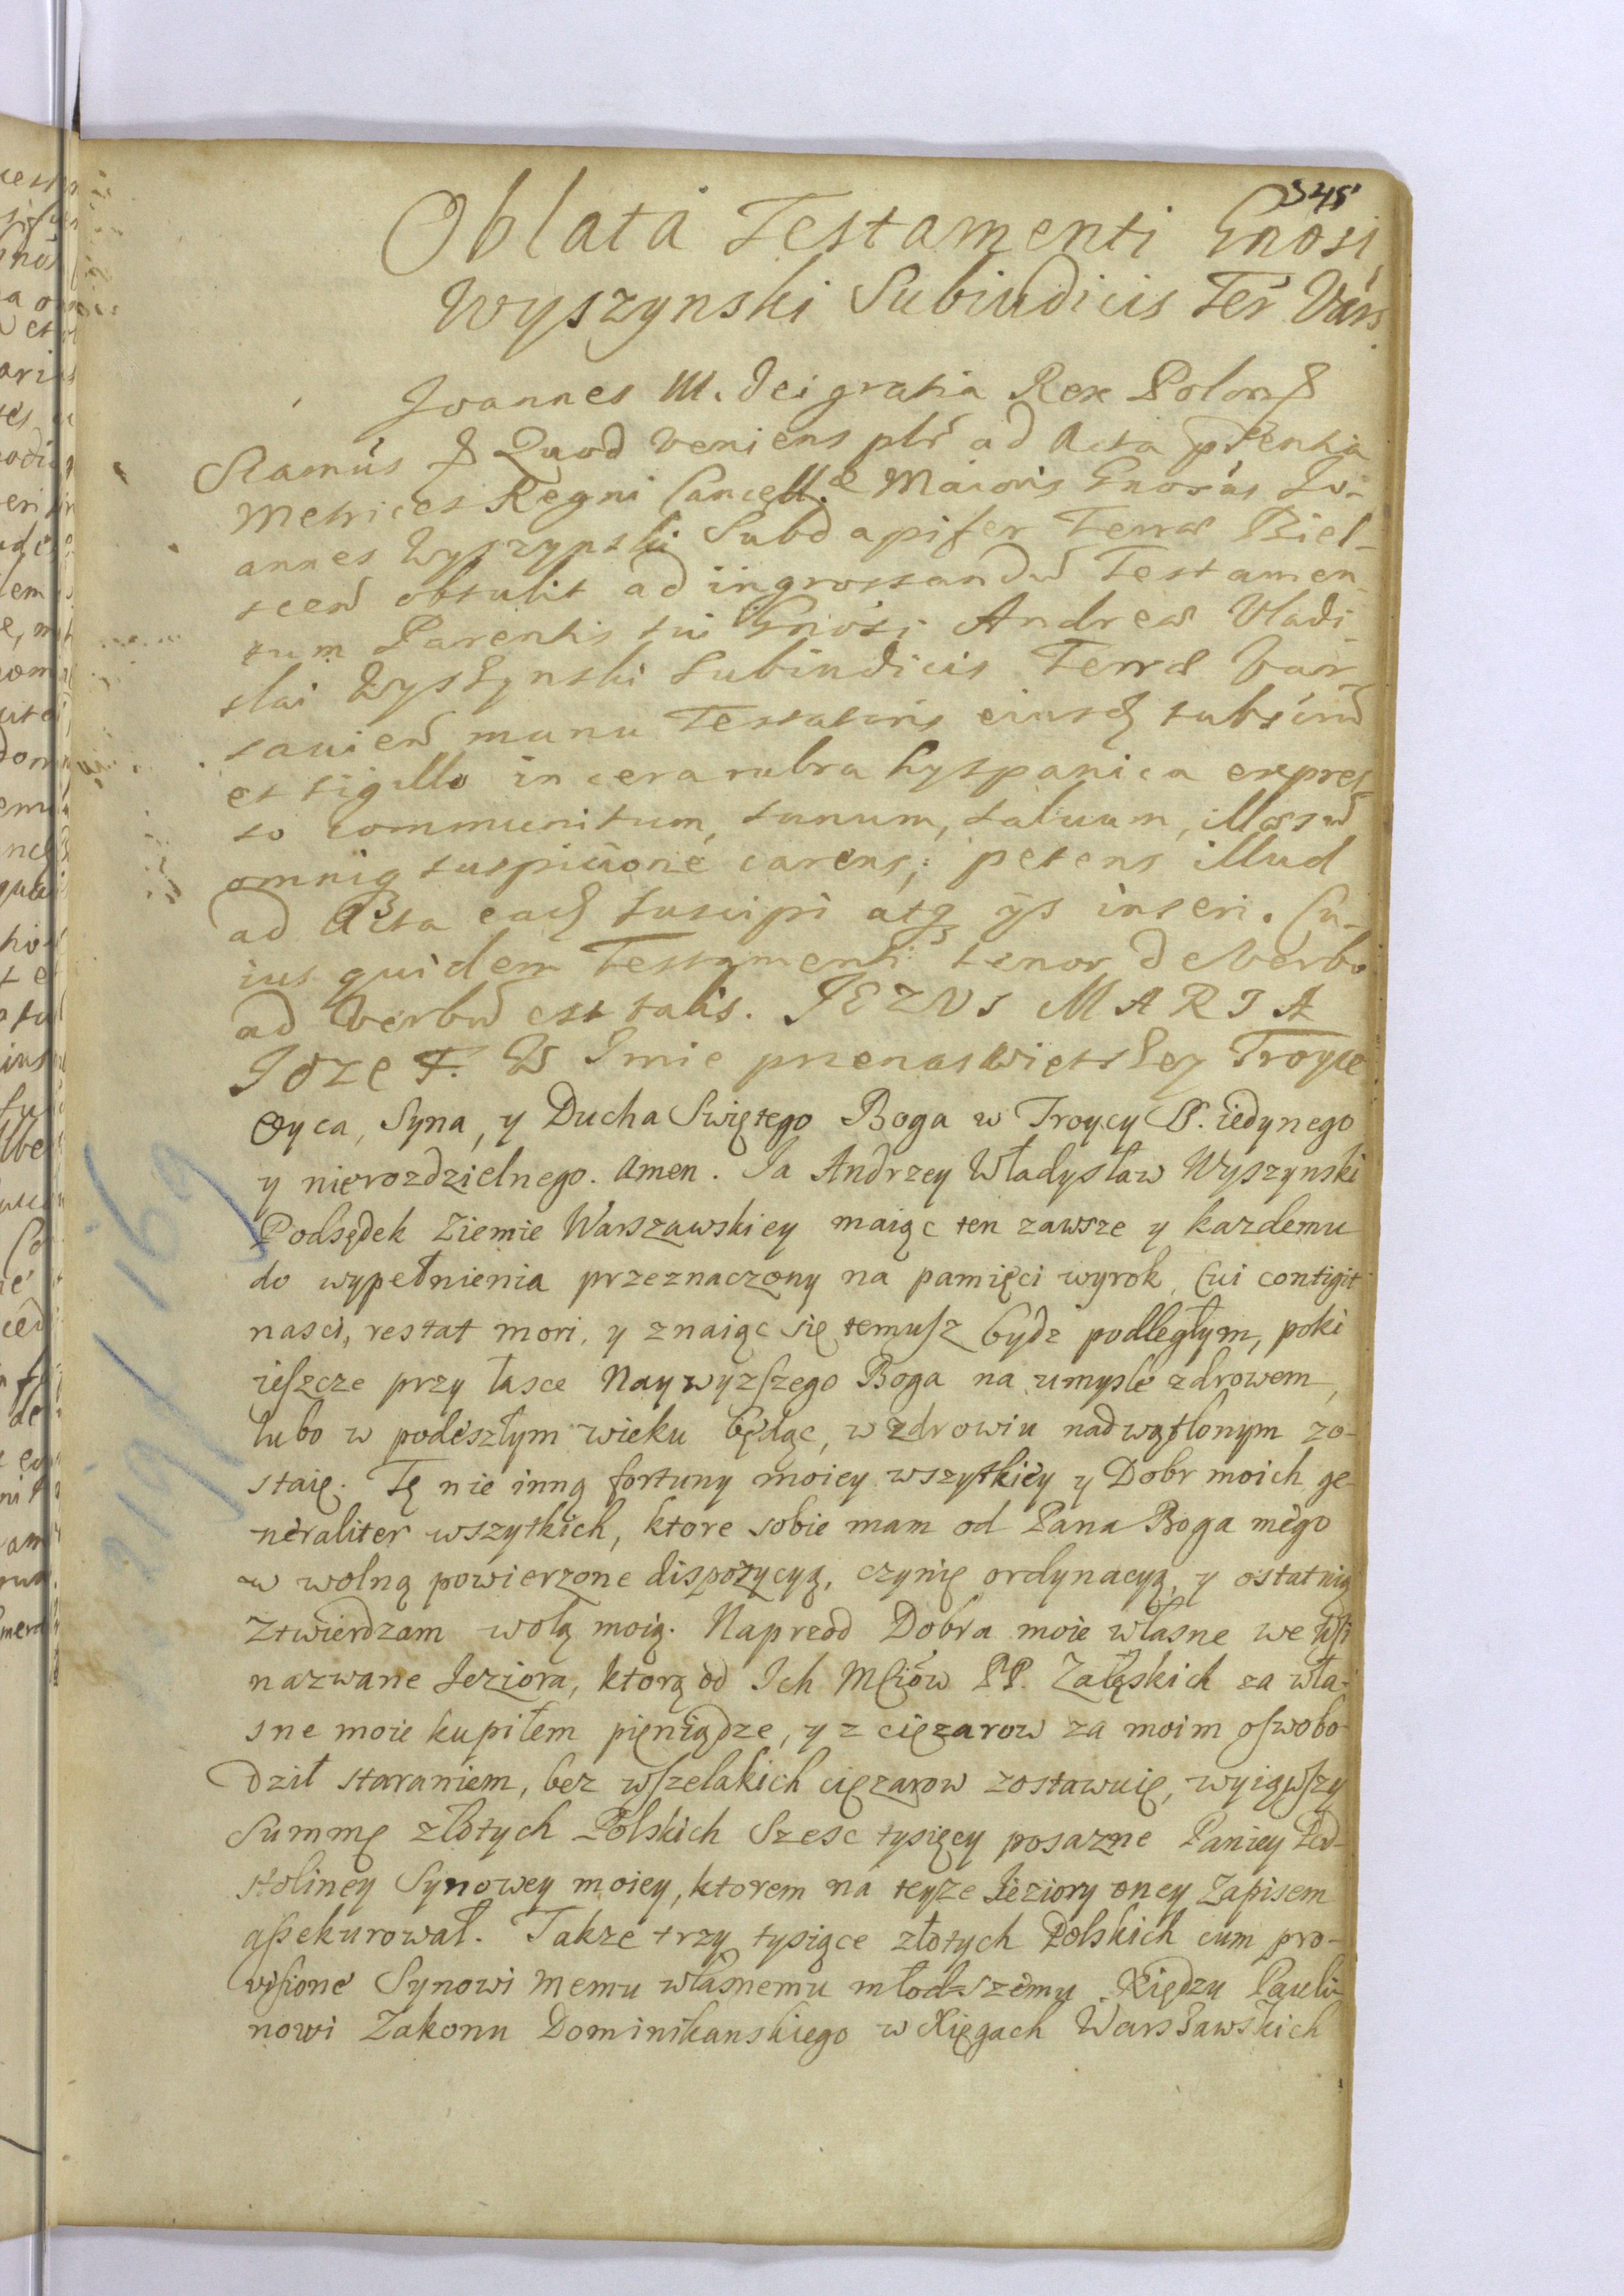 345
Oblata Testamenti Gnosi
Wyszynski Subiudicis Ter Vars.
Joannes III. Dei gratia Rex Polon &
Stamus & Quod veniens plr ad Acta prentia
Metrices Regni Cancell. Maioris Gnosus Jo-
annes Wyszynski Subdapifer Terræ Biel-
scen obtulit ad ingrossandu Testamen
tum Parentis sui Gnosi Andreæ Vladi
slai Wyszynski Subiudicis Terræ Var
saviens manu Testatoris eiusdē
et sigillo in cera rubra hyspanica expres
so communitum, sanum, saluum, illæsu
omniq suspicione carens; petens illud
ad Acta eadē suscipi atq ijs inseri. Cu-
ius quidem Testamenti tenor de verbo
ad verbu est talis. JEZUS MARIA
JOZEF. W Imie przenaswietszey Troyce
Oyca, Syna, y Ducha Swiętego Boga w Troycy S. iedynego
y nierozdzielnego. Amen. Ja Andrzey Władysław Wyszynski
Podsędek Ziemie Warszawskiey maiąc ten zawsze y kazdemu
do wypełnienia przeznaczony na pamięci wyrok, Cui contigit
nasci, restat mori, y znaiąc się temusz bydz podległym, poki
ieszcze przy łasce Naywyzszego Boga na umysle zdrowem,
lubo w podeszłym wieku będąc, w zdrowiu nadwątlonym zo-
staię. Tę nie inną fortuny moiey wszytkiey y Dobr moich ge-
neraliter wszytkich, ktore sobie mam od Pana Boga mego
w wolną powierzone dispozycyą, czynię ordynacyą, y ostatnią
Ztwierdzam wolą moią. Naprzod Dobra moie własne we wsi
nazwane Jeziora, ktorą od Ich Mciów PP. Załęskich za wła-
sne moie kupiłem pieniądze, y z cięzarow za moim oswobo
dził staraniem, bez wszelakich cięzarow zostawuię, wyiąwszy
Summę złotych Polskich Szesc tysięcy posazne Paniey Pod-
stoliney Synowey moiey, ktorem na teyze Jeziory oney Zapisem
assekurował. Takze trzy tysiące złotych Polskich cum pro-
visione Synowi memu własnemu młodszemu Xiędzu Pauli-
nowi Zakonu Dominikanskiego w Xięgach Warszawskich